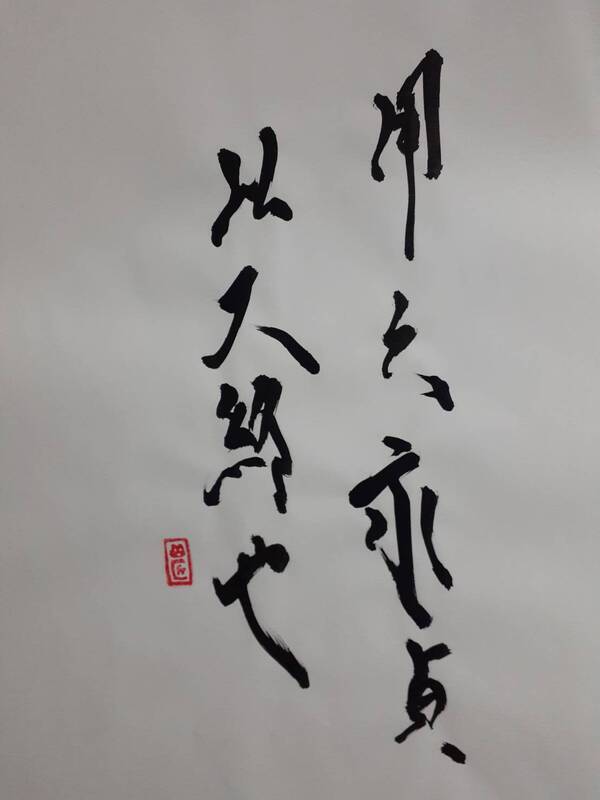 用六永貞
以大終也